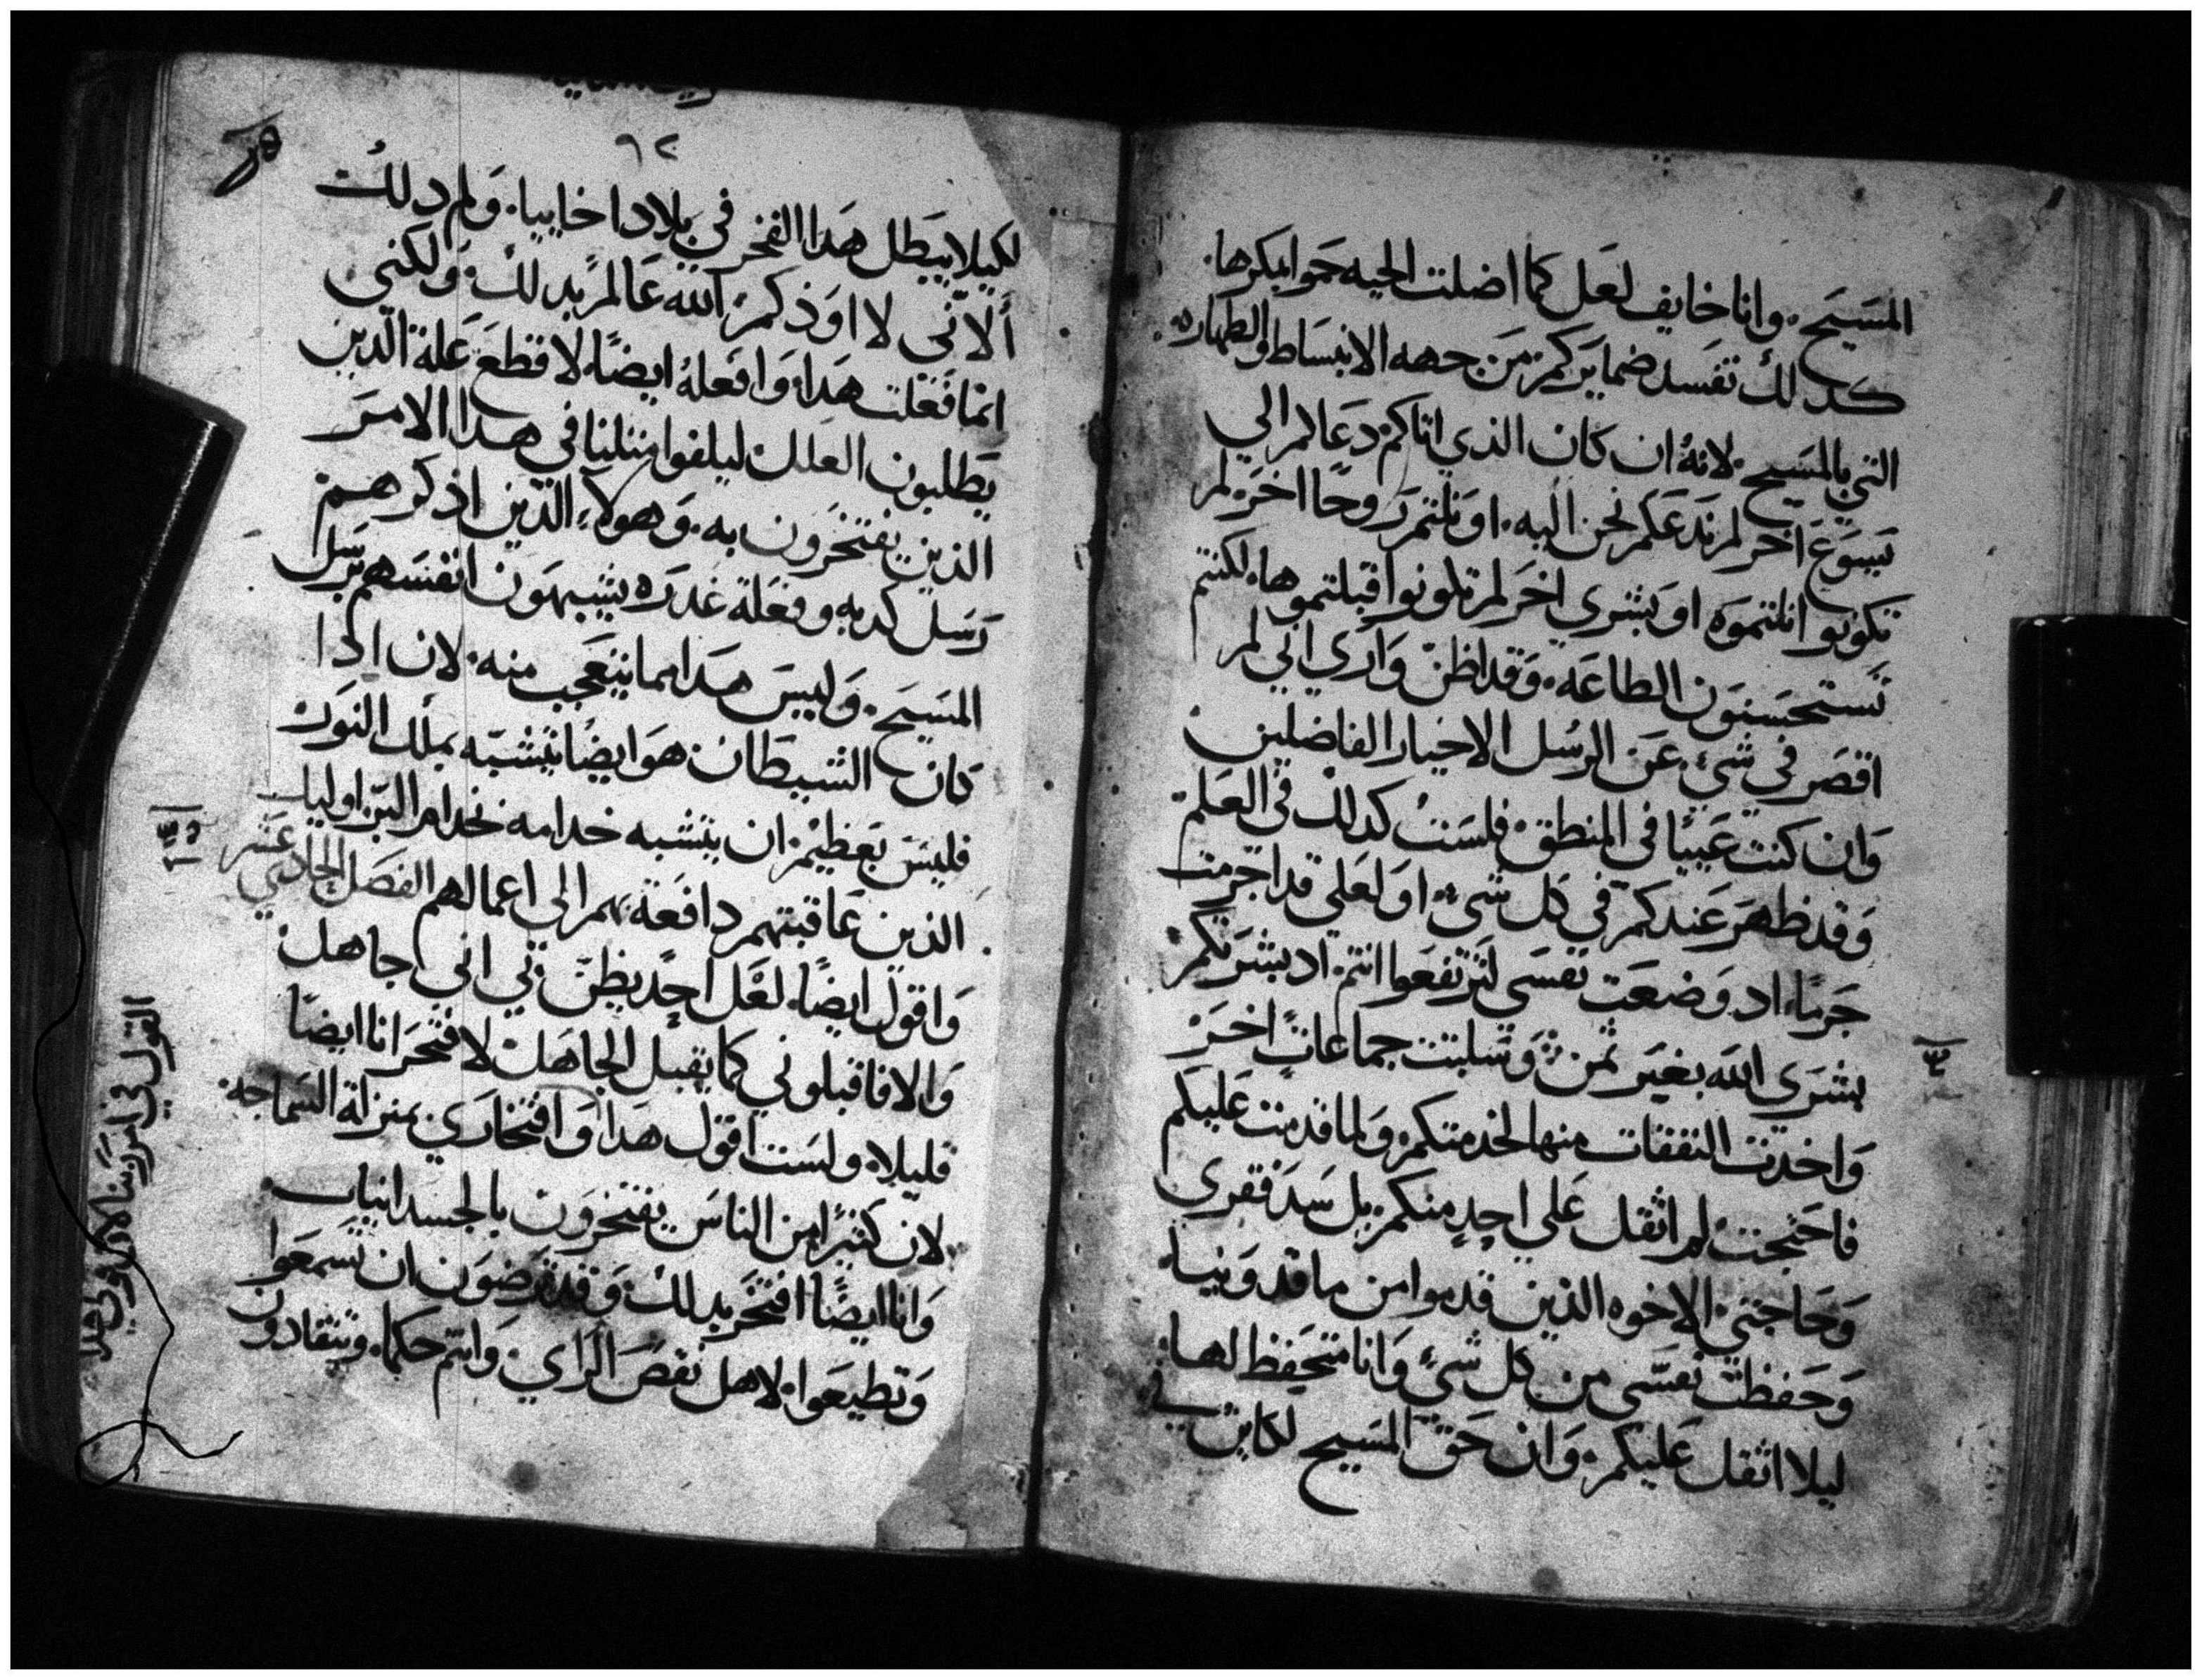 المسيح. وانا خايف لعل كما اضلت الحيه حوا بمكرها.
كدلك تفسد ضمايركم من جهه الانبساط والطهاره.
التي بالمسيح. لانه ان كان الذي اتاكم دعاكم الي
يسوع اخر لم ندعكم نحن اليه. او نلتم روحًا اخر لم
تكونوا نلتموه او بشري اخر لم تكونوا قبلتموها. لكنتم
تستحسنون الطاعه. وقد اظن واري اني لم
اقصر في شيء عن الرسل الاخيار الفاضلين
وان كنت عييًا في المنطق. فلست كدلك في العلم
وقد ظهر عندكم في كل شيء. او لعلي قد اجرمت
جرمًا. اد وضعت نفسي لترتفعوا انتم. اد بشرتكم
بشري الله بغير ثمن. وسلبت جماعاتٍ اخر
واخدت النفقات منها لخدمتكم. ولما قدمت عليكم
فاحتجت. لم اثقل علي احدٍ منكم. بل سد فقري
وحاجتي. الاخوه الذين قدموا من ماقدونيا.
وحفظت نفسي من كل شيء وانا متحفظ لها.
ليلا اثقل عليكم. وان حق المسيح لكاين في
٤
٩٢
لكيلا يبطل هدا الفخر في بلاد اخاييا. ولم دلك
ألاني لا اودكم. الله عالم بدلك. ولكني
انما فعلت هدا. وافعله ايضًا. لاقطع علة الذين
يطلبون العلل ليلفوا مثلنا في هدا الامر
الذين يفتخرون به. وهولاء الذين اذكرهم
رسل كدبه وفعلة غدره يشبهون انفسهم برسل
المسيح. وليس هدا مما يتعجب منه. لان ادا
كان الشيطان هو ايضًا يتشبه بملك النور
فليس بعظيم. ان يتشبه خدامه بخدام البر. اوليك
الذين عاقبتهم دافعة بهم الى اعمالهم الفصل الحادي عشر
واقول ايضًا. لعل احدٍ يظن بي اني جاهل
والا فاقبلوني كما يقبل الجاهل لافتخر انا ايضًا
قليلا. ولست اقول هدا وافتخاري بمنزلة السماجه
لان كثيرًا من الناس يفتخرون بالجسدانيات
وانا ايضًا افتخر بدلك. وقد ترضون ان تسمعوا
وتطيعوا. لاهل نقص الراي. وانتم حكما. وتنقادون
القول في امر ربنا